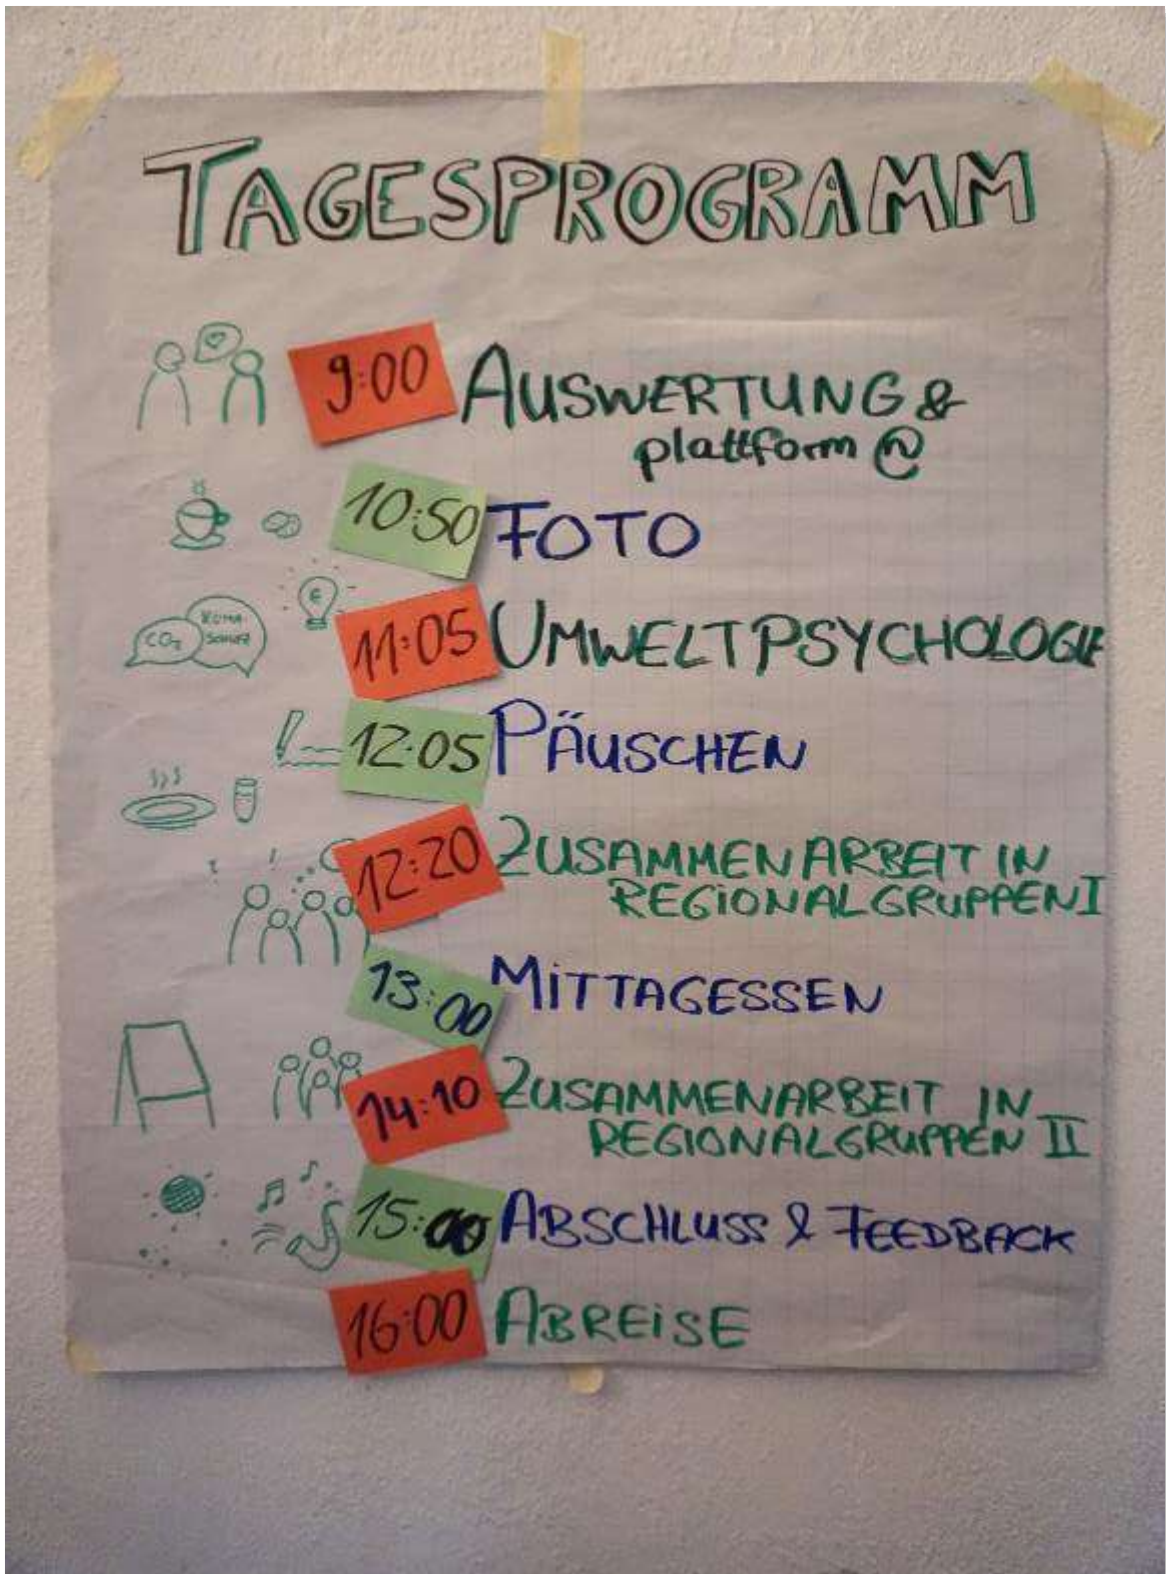 TAGESPROGRAMM
9:00 AUSWERTUNG &
plattform n
10:50 FOTO
CO₂ KLIMA-
SCHUTZ
11:05 UMWELTPSYCHOLOGIE
12:05 PÄUSCHEN
12:20 ZUSAMMENARBEIT IN
REGIONALGRUPPEN I
13:00 MITTAGESSEN
14:10 ZUSAMMENARBEIT IN
REGIONALGRUPPEN II
15:00 ABSCHLUSS & FEEDBACK
16:00 ABREISE